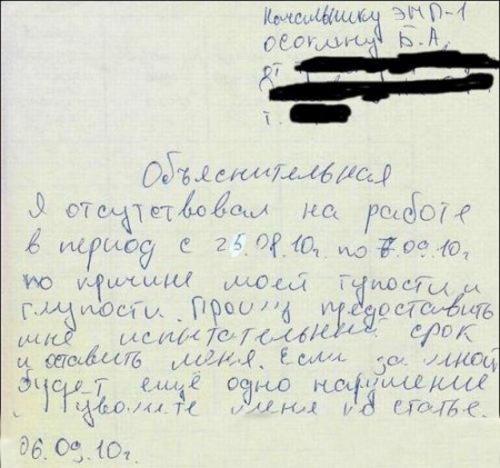 Начальнику ЭМП-1
Осокину Б.А.
от
г.
Объяснительная
Я отсутствовал на работе
в период с 25.08.10г. по 6.09.10г.
по причине моей тупости и
глупости. Прошу предоставить
мне испытательный срок
и оставить меня. Если за мной
будет ещё одно нарушение
увольте меня по статье.
06.09.10г.